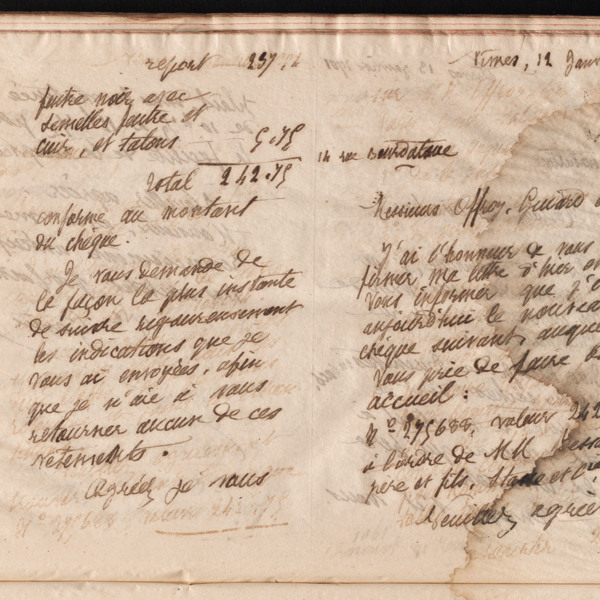 report 237
feutre noir avec
semelles feutre et
cuir, et talons 5.75
Total 242.75
conforme au montant
du chèque.
Je vous demande de
la façon la plus instante
de suivre rigoureusement
les indications que je
vous ai envoyées, afin
que je n'aie à vous
retourner aucun de ces
vêtements.
Agréez je vous
Nimes, 12 Janv
14 rue Bourdaloue
Messieurs Offroy, Guiard
J'ai l'honneur de vous
firmer ma lettre d'hier
vous informer que j'
aujourd'hui le nouveau
chèque suivant, auquel
vous prie de faire
accueil :
N° 275688, valeur 242
à l'ordre de MM
père et fils,
Veuillez agréer